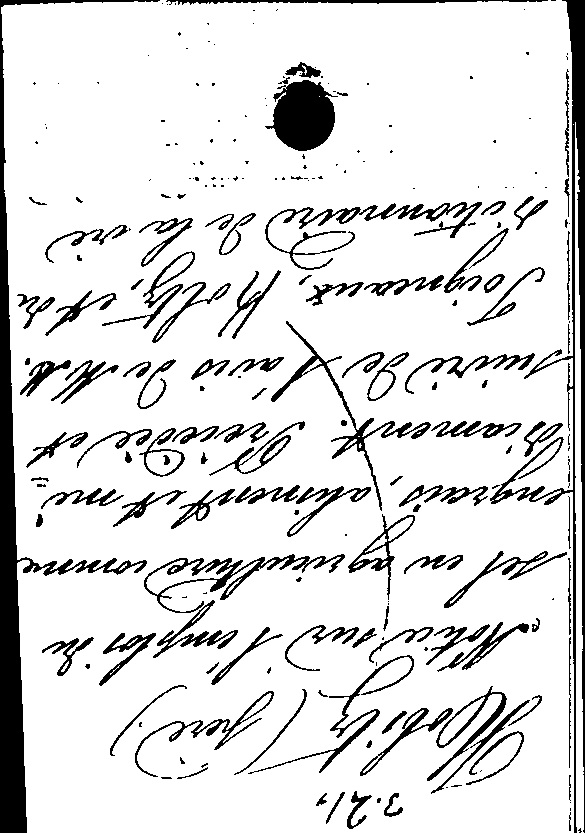 3.21.
Kobitz (père)
Notice sur l'emploi du
sel en agriculture comme
engrais, aliment et mé=
dicament. Précédée et
suivie de l'avis de M.M.
Joigneaux, Koltz, et du
dictionnaire de la vie